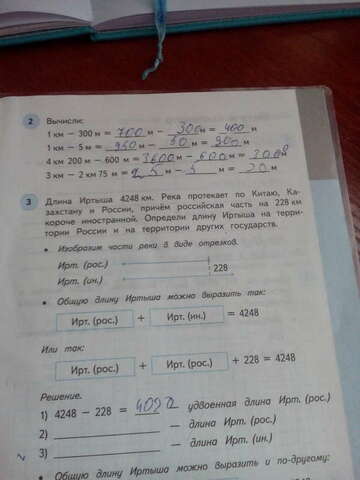 2 Вычисли:
1 км − 300 м = 700 м − 300 м = 400 м
1 км − 5 м = 950 м − 50 м = 900 м
4 км 200 м − 600 м = 3600 м − 600 м = 3000 м
3 км − 2 км 75 м = м − м = 20 м
3 Длина Иртыша 4248 км. Река протекает по Китаю, Ка-
захстану и России, причём российская часть на 228 км
короче иностранной. Определи длину Иртыша на терри-
тории России и на территории других государств.
• Изобразим части реки в виде отрезков.
Ирт. (рос.)
228
Ирт. (ин.)
• Общую длину Иртыша можно выразить так:
Ирт. (рос.) + Ирт. (ин.) = 4248
Или так:
Ирт. (рос.) + Ирт. (рос.) + 228 = 4248
Решение.
1) 4248 − 228 = 4020 удвоенная длина Ирт. (рос.)
2) — длина Ирт. (рос.)
3) — длина Ирт. (ин.)
• Общую длину Иртыша можно выразить и по-другому: